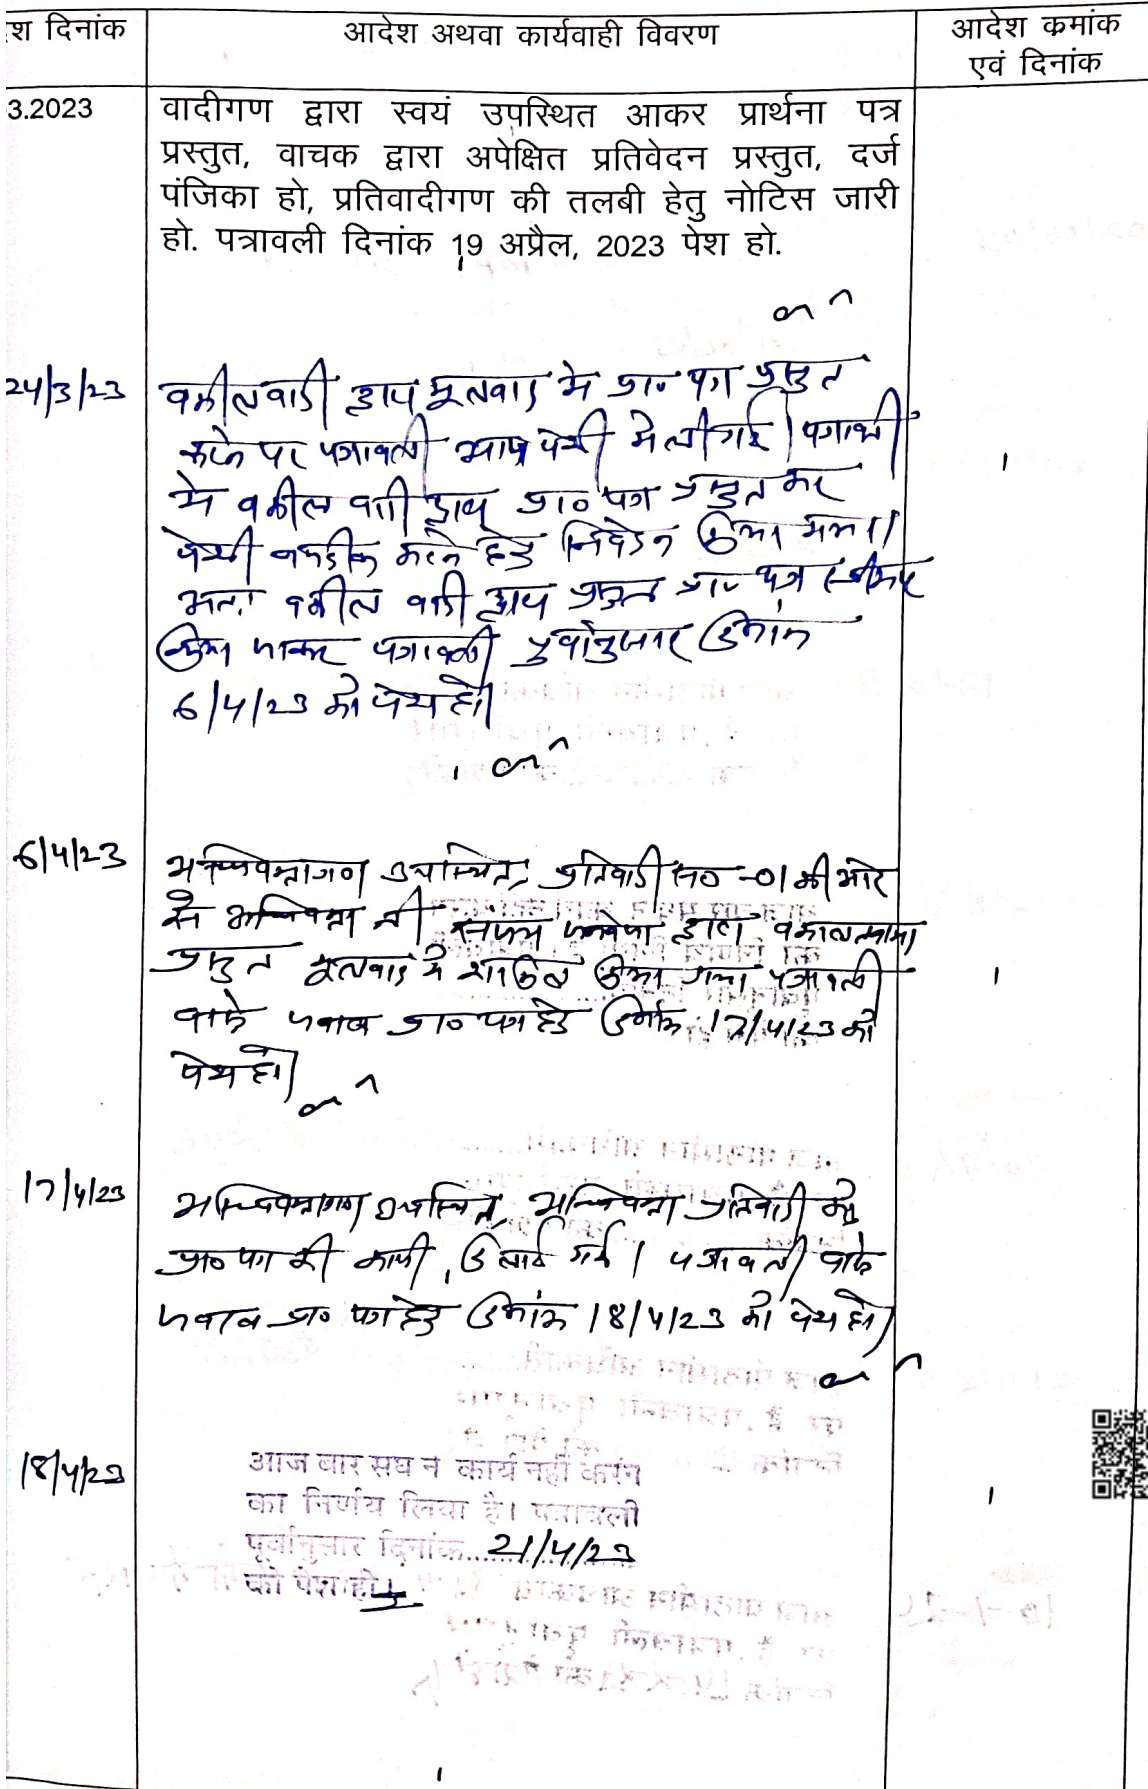 श दिनांक
आदेश अथवा कार्यवाही विवरण
आदेश कमांक
एवं दिनांक
3.2023
वादीगण द्वारा स्वयं उपस्थित आकर प्रार्थना पत्र
प्रस्तुत, वाचक द्वारा अपेक्षित प्रतिवेदन प्रस्तुत, दर्ज
पंजिका हो, प्रतिवादीगण की तलबी हेतु नोटिस जारी
हो. पत्रावली दिनांक 19 अप्रैल, 2023 पेश हो.
24/3/23
वकील वादी द्वारा मूलवाद मे प्रा० पत्र प्रस्तुत
करने पर पत्रावली आज पेशी मे ली गई। पत्रावली
मे वकील वादी द्वारा प्रा० पत्र प्रस्तुत कर
पेशी नजदीक करने हेतु निवेदन किया गया।
अतः वकील वादी द्वारा प्रस्तुत प्रा० पत्र स्वीकार
किया जाकर पत्रावली पूर्वानुसार दिनांक
6/4/23 को पेश हो।
6/4/23
अधिवक्तागण उपस्थित, प्रतिवादी स० -01 की ओर
से अधिवक्ता श्री द्वारा वकालतनामा
प्रस्तुत मूलवाद मे शामिल किया गया पत्रावली
वास्ते जवाब प्रा० पत्र हेतु दिनांक 17/4/23 को
पेश हो।
17/4/23
अधिवक्तागण उपस्थित, अधिवक्ता प्रतिवादी को
प्रा० पत्र की कापी दिलाई गई। पत्रावली वास्ते
जवाब प्रा० पत्र हेतु दिनांक 18/4/23 को पेश हो।
18/4/23
आज बार संघ ने कार्य नहीं करने
का निर्णय लिया है। पत्रावली
पूर्वानुसार दिनांक......21/4/23
को पेश हो।